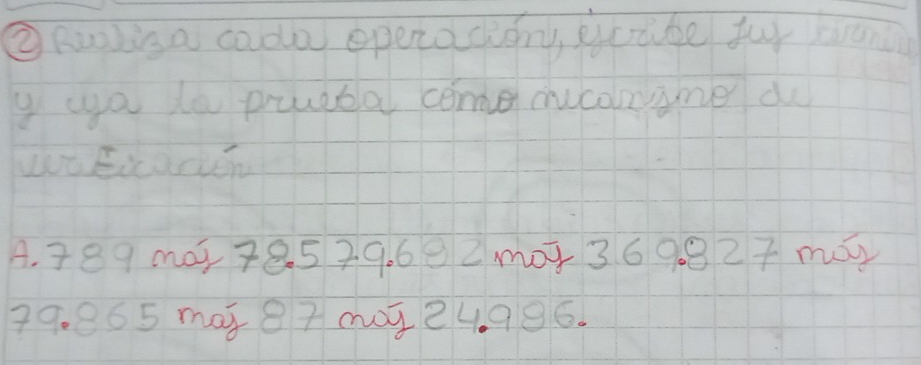 ② Realiza cada operación, escribe sus
y usa la prueba como mecanismo de
verificación
A. 789 más 78.579.692 más 369.827 más
79.865 más 87 más 24.986.